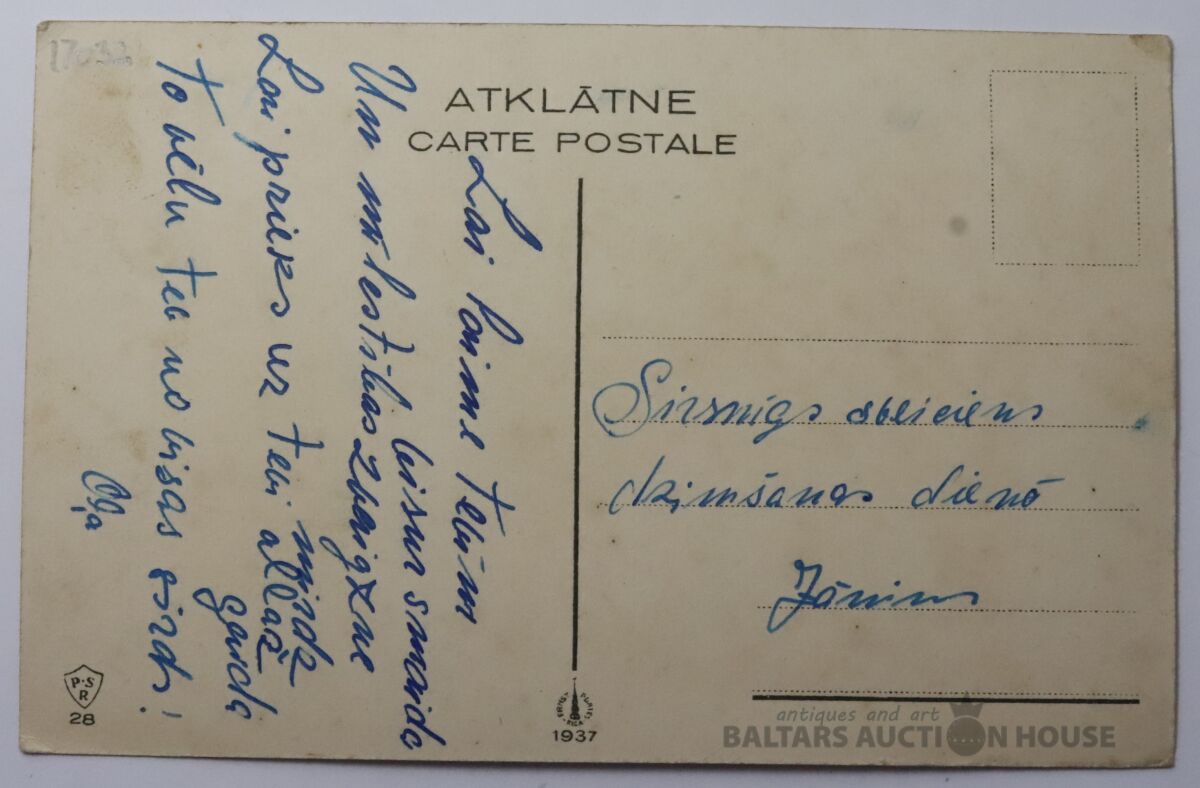 17032
ATKLĀTNE
CARTE POSTALE
Lai laime tevim
visur smaida
Un mīlestības zvaigzne
mirdz
Lai prieks uz tevi allaž
gaida
To vēlu tev no visas sirds!
Oļa
Sirsnīgs sveiciens
dzimšanas dienā
Jānim
P.S
R
28
RĪGA
1937
antiques and art
BALTARS AUCTION HOUSE